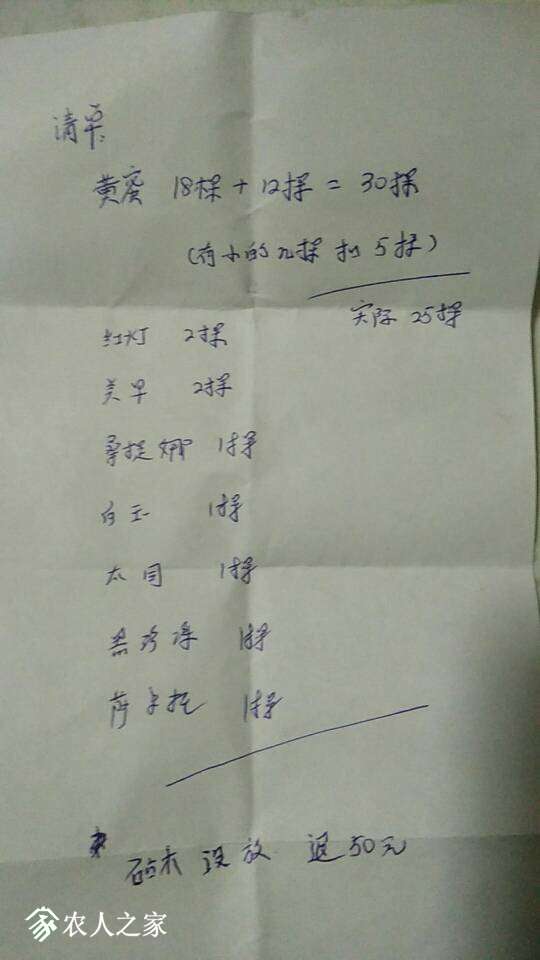 清单
黄蜜 18棵 + 12棵 = 30棵
(有小的几棵 扣 5棵)
实际 25棵
红灯 2棵
美早 2棵
桑提娜 1棵
白玉 1棵
太同 1棵
黑珍珠 1棵
萨卡托 1棵
没放 退50元
农人之家